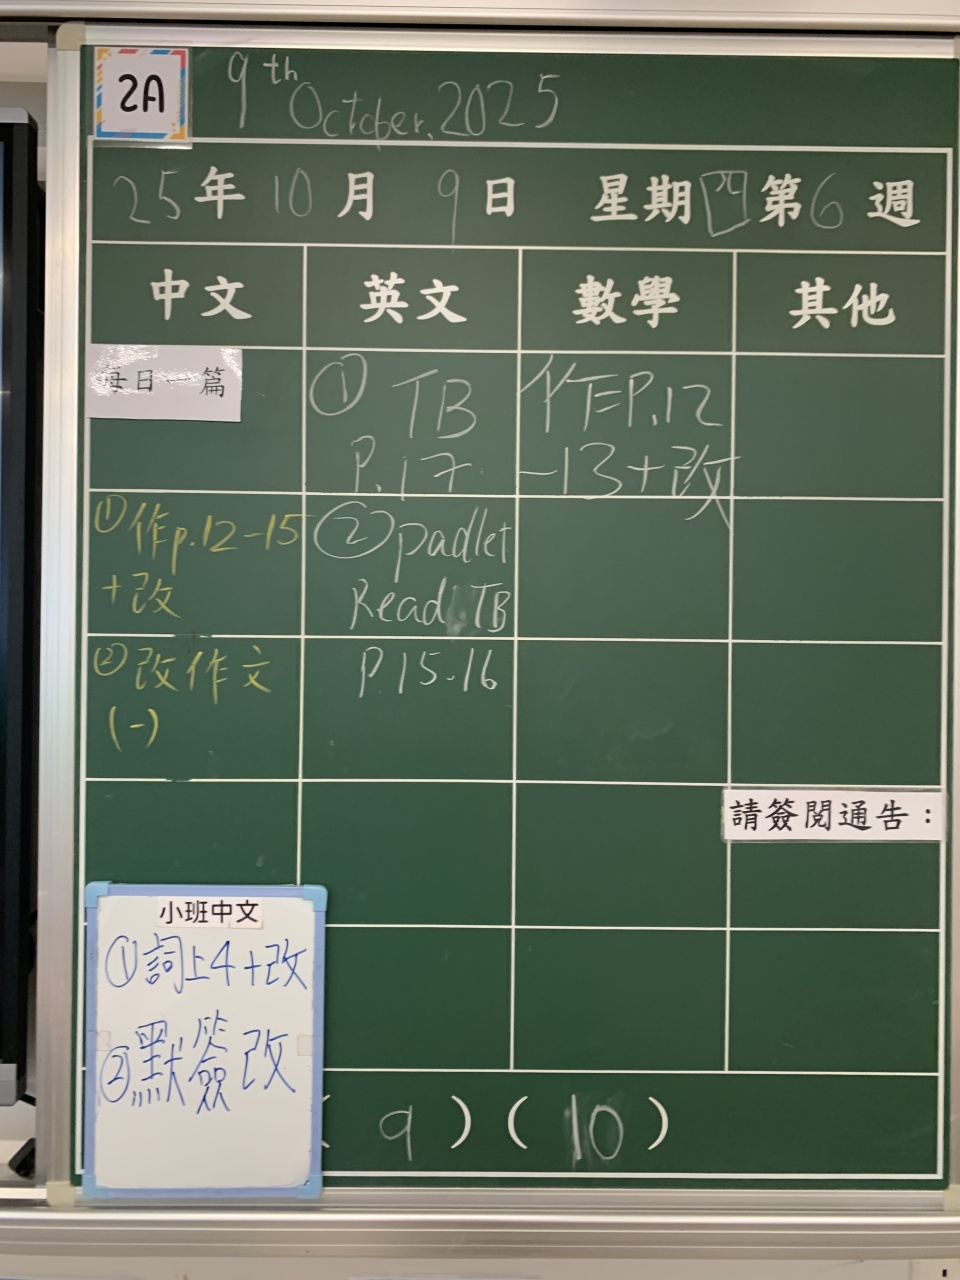 2A
9th October, 2025
25年10月9日 星期四 第6週
中文 英文 數學 其他
每日一篇
①作p.12-15
+改
②改作文
(一)
① TB
P.17
② padlet
Read TB
P.15-16
作P.12
-13+改
請簽閱通告：
小班中文
①詞上4+改
②默簽改
(9)(10)